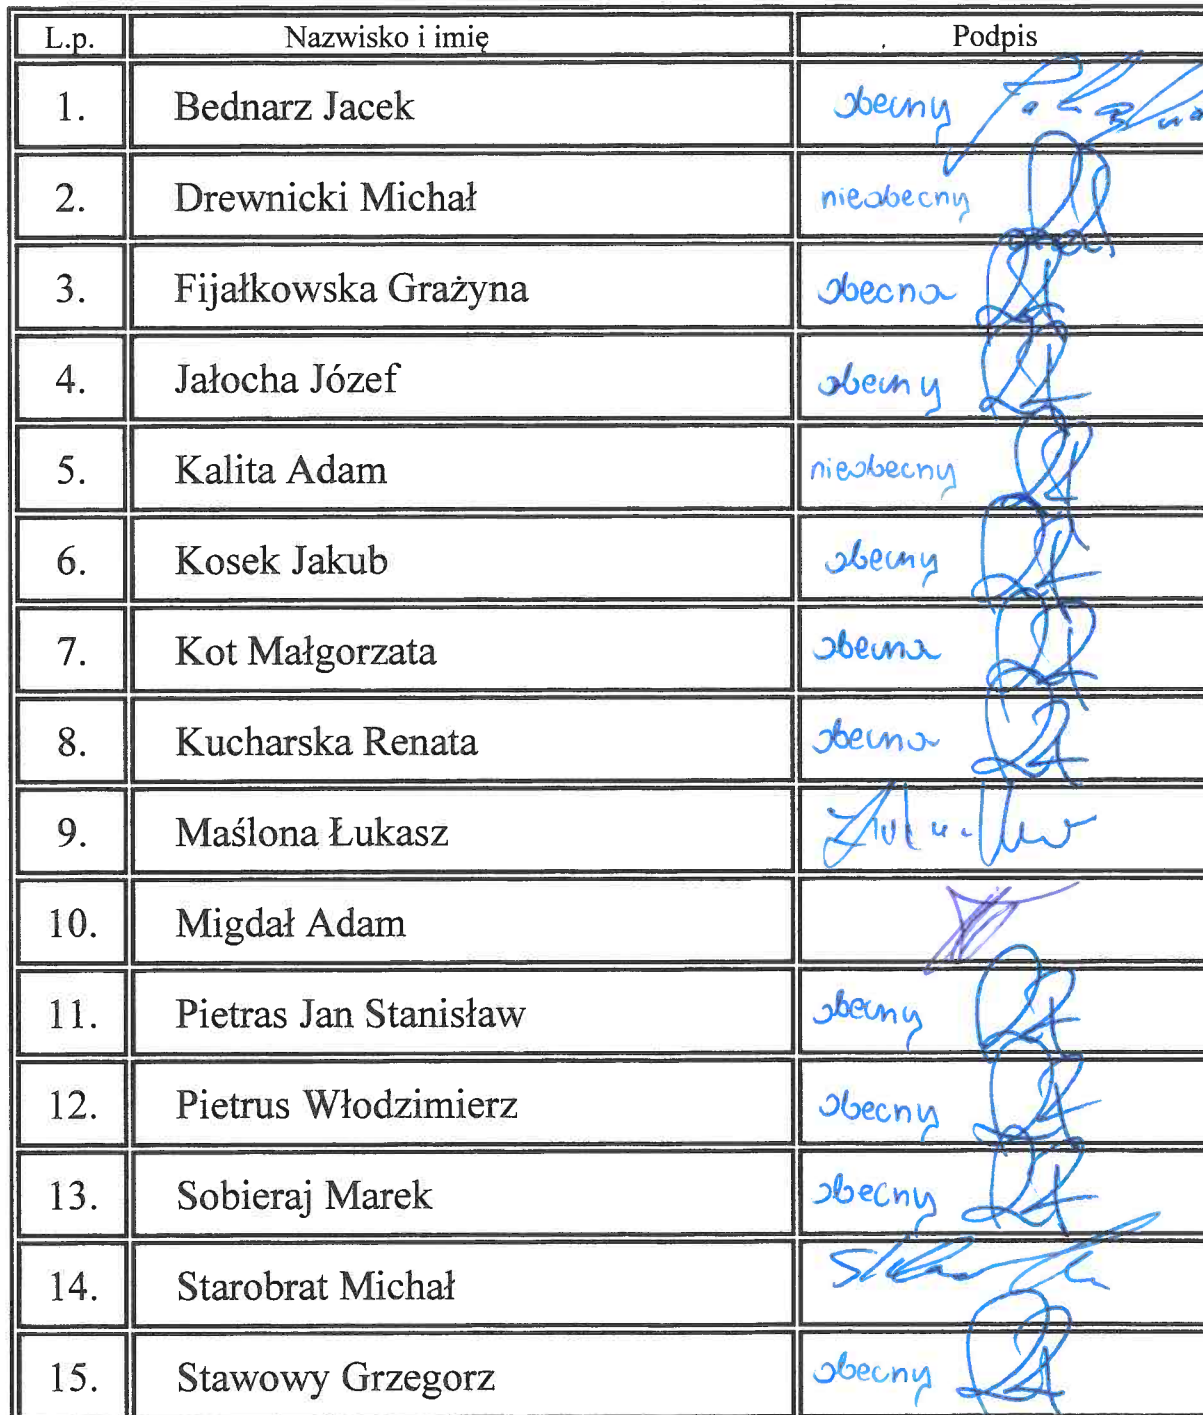 L.p. Nazwisko i imię Podpis
1. Bednarz Jacek obecny
2. Drewnicki Michał nieobecny
3. Fijałkowska Grażyna obecna
4. Jałocha Józef obecny
5. Kalita Adam nieobecny
6. Kosek Jakub obecny
7. Kot Małgorzata obecna
8. Kucharska Renata obecna
9. Maślona Łukasz
10. Migdał Adam
11. Pietras Jan Stanisław obecny
12. Pietrus Włodzimierz obecny
13. Sobieraj Marek obecny
14. Starobrat Michał
15. Stawowy Grzegorz obecny